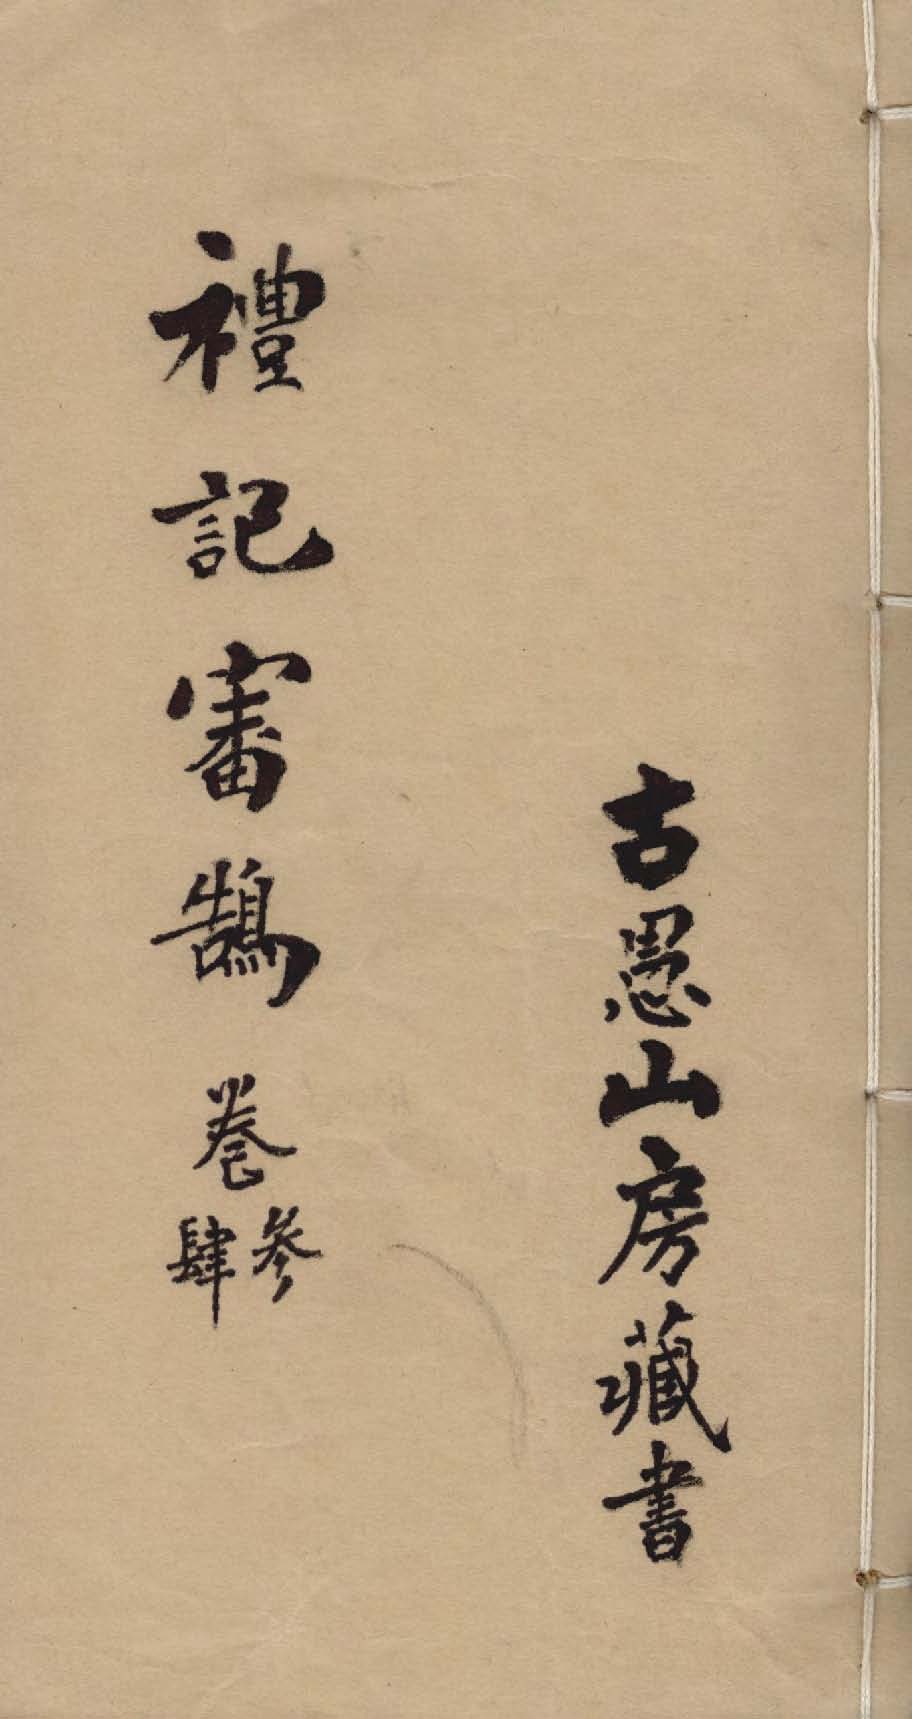 古愚山房藏書
禮記審鵠卷
參
肆